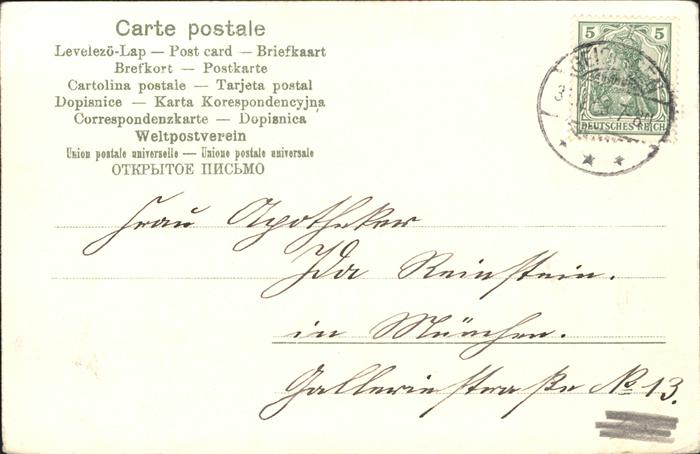 Carte postale
Levelezö-Lap — Post card — Briefkaart
Brefkort — Postkarte
Cartolina postale — Tarjeta postal
Dopisnice — Karta Korespondencyjna
Correspondenzkarte — Dopisnica
Weltpostverein
Union postale universelle — Unione postale universale
ОТКРЫТОЕ ПИСЬМО
5 5
DEUTSCHES REICH
Frau Apotheker
Ida Reinstein.
in München.
Galleriestraße No 13.